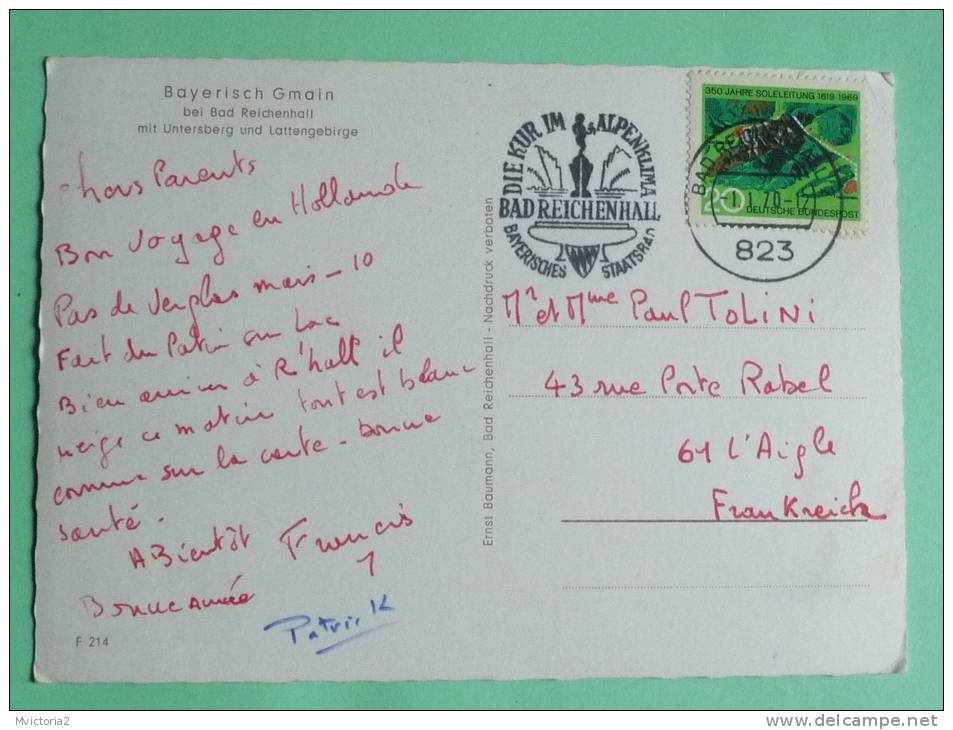 Bayerisch Gmain
bei Bad Reichenhall
mit Untersberg und Lattengebirge
chers Parents
Bon Voyage en Hollande
Pas de Verglas mais - 10
Fait du Patin au Lac
Bien arriver à R'hall il
neige ce matin tout est blanc
comme sur la carte - bonne
santé.
A Bientôt Francis
Bonne année
Patrick
F 214
Ernst Baumann, Bad Reichenhall - Nachdruck verboten
DIE KUR IM ALPENKLIMA
BAD REICHENHALL
BAYERISCHES STAATSBAD
350 JAHRE SOLELEITUNG 1619-1969
20
DEUTSCHE BUNDESPOST
BAD
-1.1.70-12
823
Mr et Mme Paul TOLINI
43 rue Porte Rabel
61 L'Aigle
Frankreich
Mvictoria2
www.delcampe.net